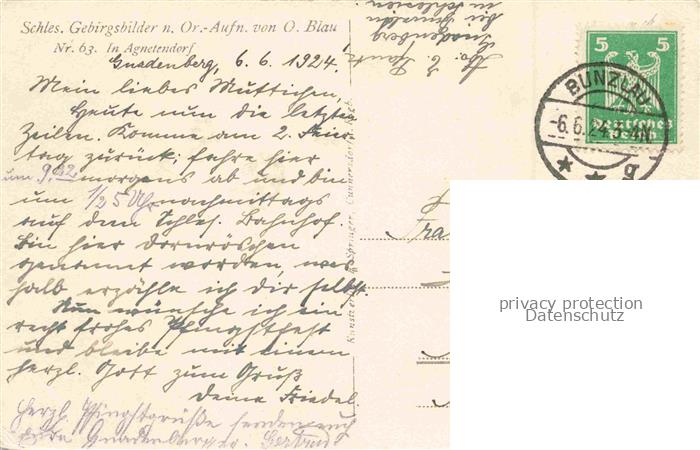 Schles. Gebirgsbilder n. Or.-Aufn. von O. Blau
Nr. 63. In Agnetendorf
Gnadenberg, 6. 6. 1924.
Mein liebes Muttichen,
Heute nun die letzten
Zeilen. Komme am 2. Feier-
tag zurück; fahre hier
um 9.42 morgens ab und bin
um 1/2 5 Uhr nachmittags
auf dem Schles. Bahnhof.
Bin hier Dornröschen
genannt worden, wes-
halb erzähle ich dir selbst.
Nun wünsche ich ein
recht frohes Pfingstfest
und bleibe mit einem
herzl. Gott zum Gruß
deine Friedel.
Herzl. Pfingstgrüße senden auch
Gertrud
Gnadenberg
bei Bunzlau
in Schlesien
5 5
Deutsches
Reich
BUNZLAU
-6.6.24.3-4N.
* * *
Fra
privacy protection
Datenschutz